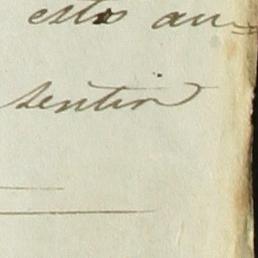 esto au=
sentir